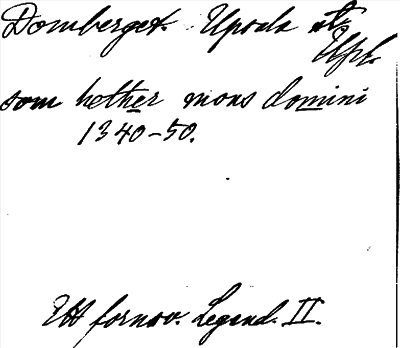 Domberget. Upsala st.
Upl.
som hether mons domini
1340-50.
Ett fornsv. Legend. II.